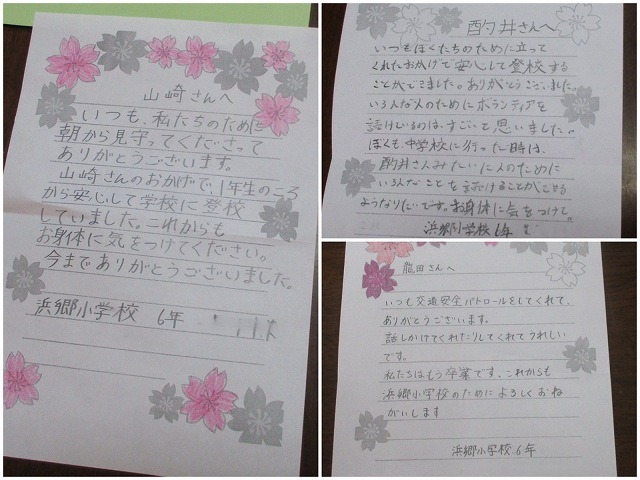 山崎さんへ
いつも、私たちのために
朝から見守ってくださって
ありがとうございます。
山崎さんのおかげで、1年生のころ
から安心して学校に登校
していました。これからも
お身体に気をつけてください。
今までありがとうございました。
浜郷小学校 6年
酌井さんへ
いつもぼくたちのために立って
くれたおかげで安心して登校する
ことができました。ありがとうございました。
いろんな人のためにボランティアを
続けているのは、すごいと思いました。
ぼくも、中学校に行った時は、
酌井さんみたいに人のために
いろんなことを続けることができる
ようなりたいです。お身体に気をつけて。
浜郷小学校6年
龍田さんへ
いつも交通安全パトロールをしてくれて、
ありがとうございます。
話しかけてくれたりしてくれてうれしい
です。
私たちはもう卒業です、これからも
浜郷小学校のためによろしくおね
がいします
浜郷小学校6年